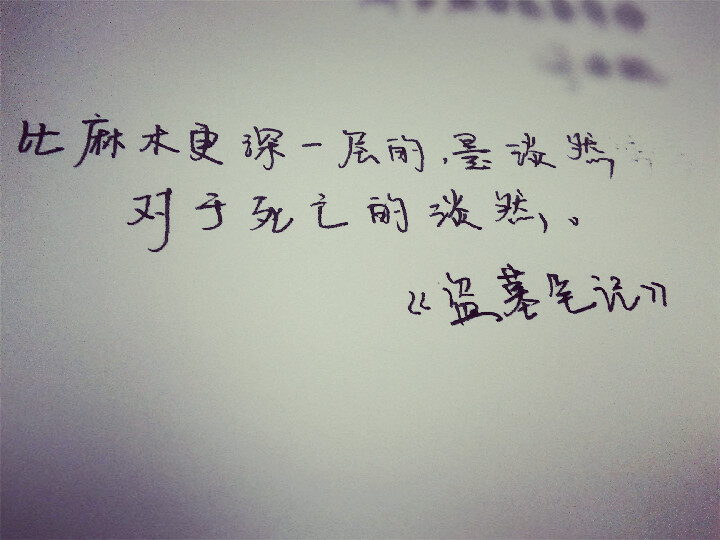 比麻木更深一层的,是淡然,
对于死亡的淡然,。
《盗墓笔记》